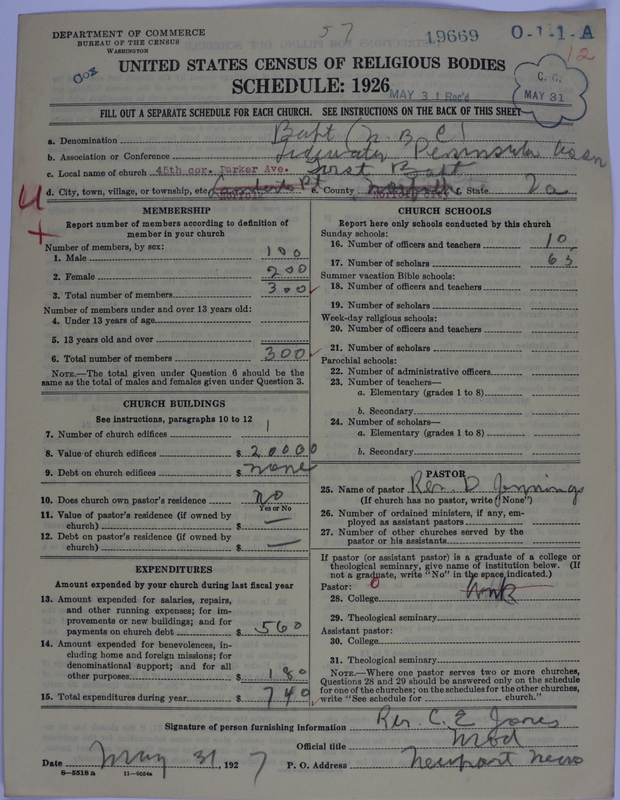 DEPARTMENT OF COMMERCE
BUREAU OF THE CENSUS
WASHINGTON
57
19669
O-1-1-A
12
UNITED STATES CENSUS OF RELIGIOUS BODIES
SCHEDULE: 1926
MAY 31 Rec'd
C. O.
MAY 31
FILL OUT A SEPARATE SCHEDULE FOR EACH CHURCH. SEE INSTRUCTIONS ON THE BACK OF THIS SHEET
a. Denomination Bapt (N. B. C)
b. Association or Conference Tidewater Peninsula Assn
c. Local name of church 45th cor. Parker Ave. First Bapt
d. City, town, village, or township, etc. Lamberts Pt Norfolk e. County Norfolk f. State Va
MEMBERSHIP
Report number of members according to definition of member in your church
Number of members, by sex:
1. Male 100
2. Female 200
3. Total number of members 300
Number of members under and over 13 years old:
4. Under 13 years of age
5. 13 years old and over
6. Total number of members 300
NOTE.—The total given under Question 6 should be the same as the total of males and females given under Question 3.
CHURCH BUILDINGS
See instructions, paragraphs 10 to 12
7. Number of church edifices 1
8. Value of church edifices $ 20000
9. Debt on church edifices $ none
10. Does church own pastor's residence no
Yes or No
11. Value of pastor's residence (if owned by church) $ —
12. Debt on pastor's residence (if owned by church) $ —
EXPENDITURES
Amount expended by your church during last fiscal year
13. Amount expended for salaries, repairs,
and other running expenses; for improvements or new buildings; and for
payments on church debt $ 560
14. Amount expended for benevolences, including home and foreign missions; for
denominational support; and for all
other purposes $ 180
15. Total expenditures during year $ 740
CHURCH SCHOOLS
Report here only schools conducted by this church
Sunday schools:
16. Number of officers and teachers 10
17. Number of scholars 65
Summer vacation Bible schools:
18. Number of officers and teachers
19. Number of scholars
Week-day religious schools:
20. Number of officers and teachers
21. Number of scholars
Parochial schools:
22. Number of administrative officers
23. Number of teachers—
a. Elementary (grades 1 to 8)
b. Secondary
24. Number of scholars—
a. Elementary (grades 1 to 8)
b. Secondary
PASTOR
25. Name of pastor Rev. D Jennings
(If church has no pastor, write "None")
26. Number of ordained ministers, if any, employed as assistant pastors
27. Number of other churches served by the pastor or his assistants
If pastor (or assistant pastor) is a graduate of a college or theological seminary, give name of institution below. (If not a graduate, write "No" in the space indicated.)
Pastor: 0
28. College Unk
29. Theological seminary
Assistant pastor:
30. College
31. Theological seminary
NOTE.—Where one pastor serves two or more churches, Questions 28 and 29 should be answered only on the schedule for one of the churches; on the schedules for the other churches, write "See schedule for church."
Signature of person furnishing information Rev. C. E Jones
Official title Mod
Date May 31, 1927 P. O. Address Newport News
8—5518 a 11—9054a